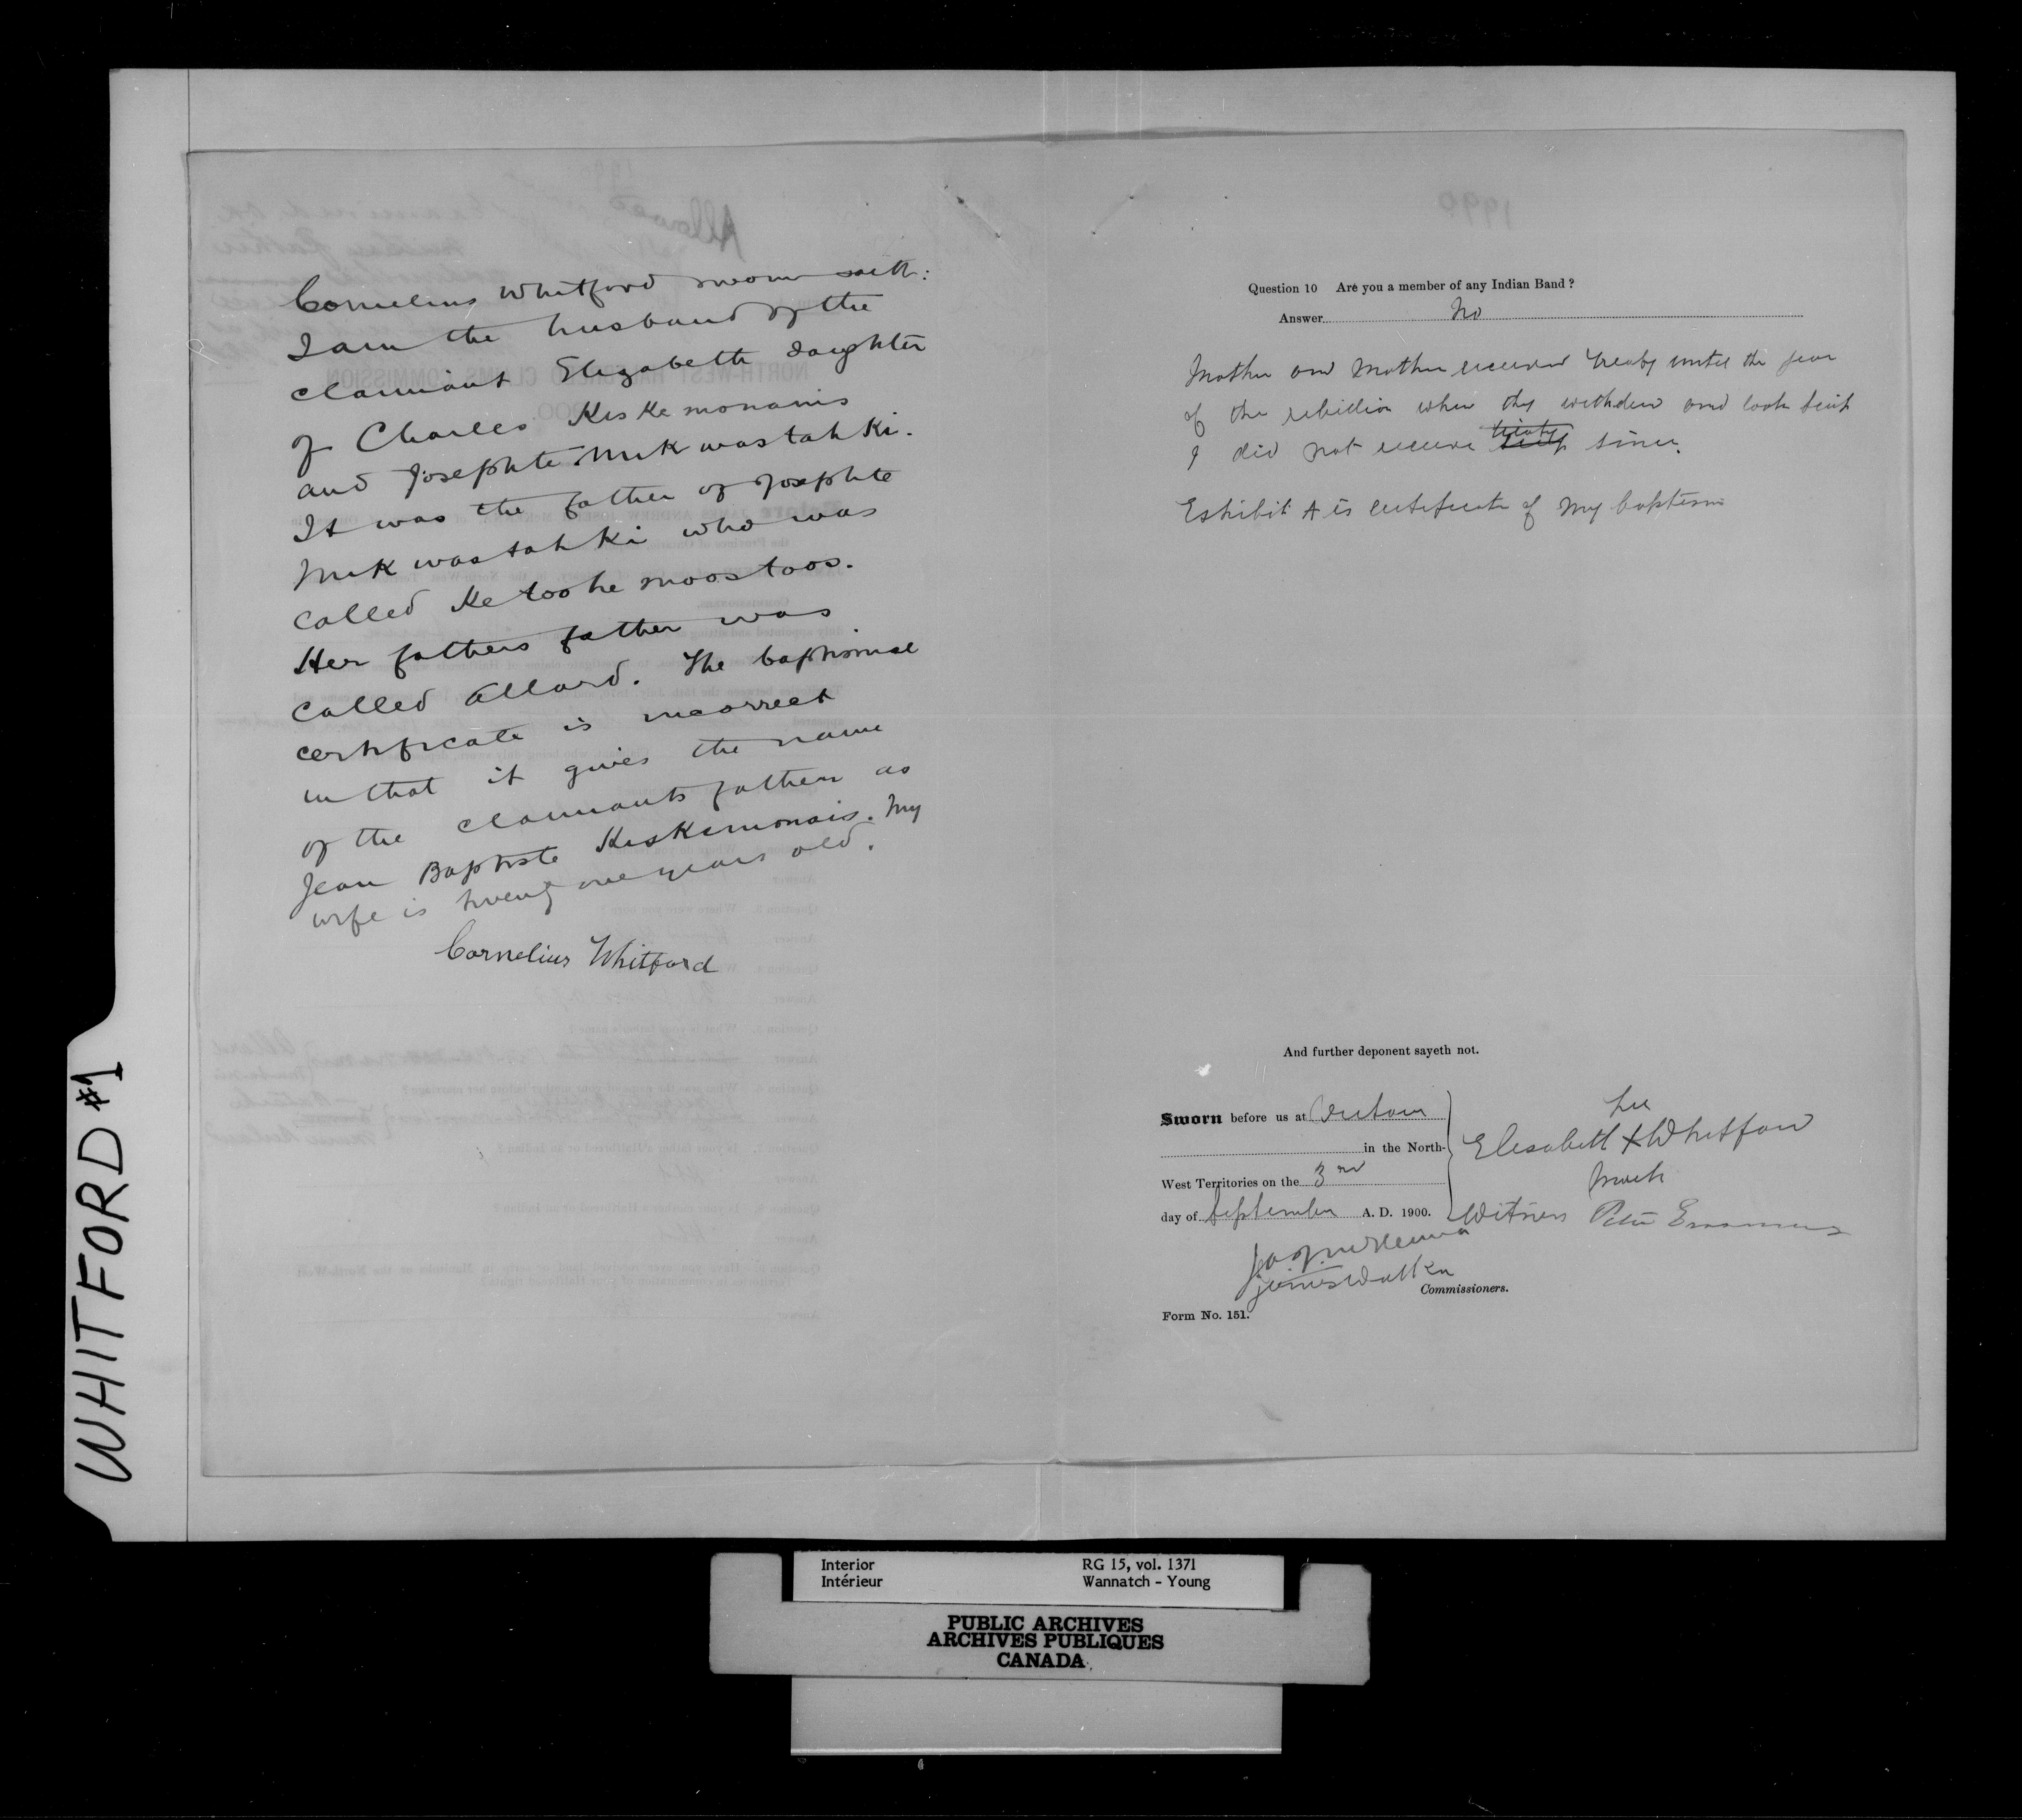 Cornelius Whitford sworn saith:
I am the husband of the
claimant Elizabeth daughter
of Charles Kiskemonanis
and Josephte Mukwastahki.
It was the father of Josephte
Mukwastahki who was
called Ketoohe moostoos.
Her fathers father was
called Allard. The baptismal
certificate is incorrect
in that it gives the name
of the claimants father as
Jean Baptiste Kiskemonais. My
wife is twenty one years old.
Cornelius Whitford
1990
Question 10 Are you a member of any Indian Band?
Answer No
Mother and Mother received treaty until the year
of the rebellion when they withdrew and took scrip
I did not receive treaty since.
Exhibit A is certificate of my baptism
And further deponent sayeth not.
Sworn before us at
in the North-
West Territories on the 3rd
day of September A. D. 1900.
her
Elesabeth X Whitford
mark
Witness Peter Erasmus
James Walker
Commissioners.
Form No. 151.
WHITFORD #1
Interior RG 15, vol. 1371
Intérieur Wannatch - Young
PUBLIC ARCHIVES
ARCHIVES PUBLIQUES
CANADA